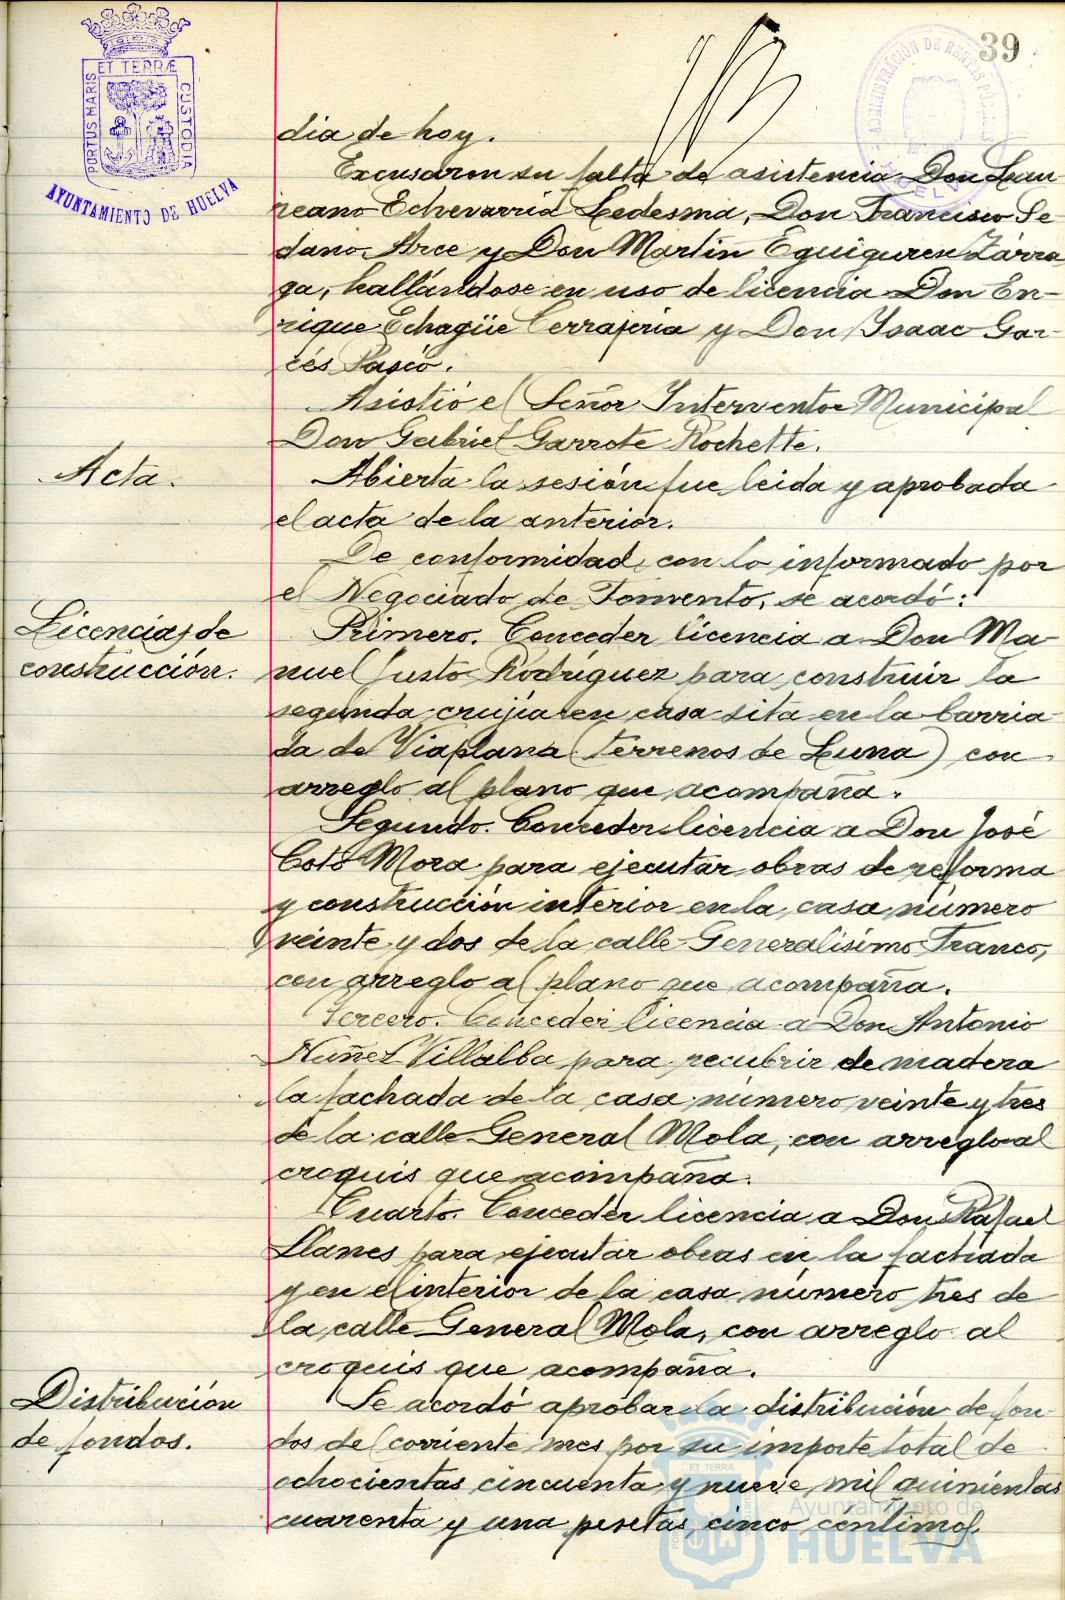 39
ET TERRÆ
PORTUS MARIS
CUSTODIA
AYUNTAMIENTO DE HUELVA
ADMINISTRACIÓN DE RENTAS PÚBLICAS
HUELVA
dia de hoy.
Excusaron su falta de asistencia Don Lau-
reano Echevarria Ledesma, Don Francisco Se-
dano Arce y Don Martin Eguiguren Zárra-
ga, hallándose en uso de licencia Don En-
rique Echagüe Cerrajeria y Don Isaac Gar-
cés Pascó.
Asistió el Señor Interventor Municipal
Don Gabriel Garrote Rochette.
Acta.
Abierta la sesión fue leida y aprobada
el acta de la anterior.
De conformidad con lo informado por
el Negociado de Fomento, se acordó:
Licencias de
construcción.
Primero. Conceder licencia a Don Ma-
nuel Justo Rodriguez para construir la
segunda crujia en casa sita en la barria
da de Viaplana (terrenos de Luna) con
arreglo al plano que acompaña.
Segundo. Conceder licencia a Don José
Coto Mora para ejecutar obras de reforma
y construcción interior en la casa número
veinte y dos de la calle Generalisimo Franco,
con arreglo al plano que acompaña.
Tercero. Conceder licencia a Don Antonio
Nuñez Villalba para recubrir de madera
la fachada de la casa número veinte y tres
de la calle General Mola, con arreglo al
croquis que acompaña.
Cuarto. Conceder licencia a Don Rafael
Llanes para ejecutar obras en la fachada
y en el interior de la casa número tres de
la calle General Mola, con arreglo al
croquis que acompaña.
Distribución
de fondos.
Se acordó aprobar la distribución de fon-
dos del corriente mes por su importe total de
ochocientas cincuenta y nueve mil quinientas
cuarenta y una pesetas cinco céntimos.
ET TERRÆ
Ayuntamiento de
HUELVA